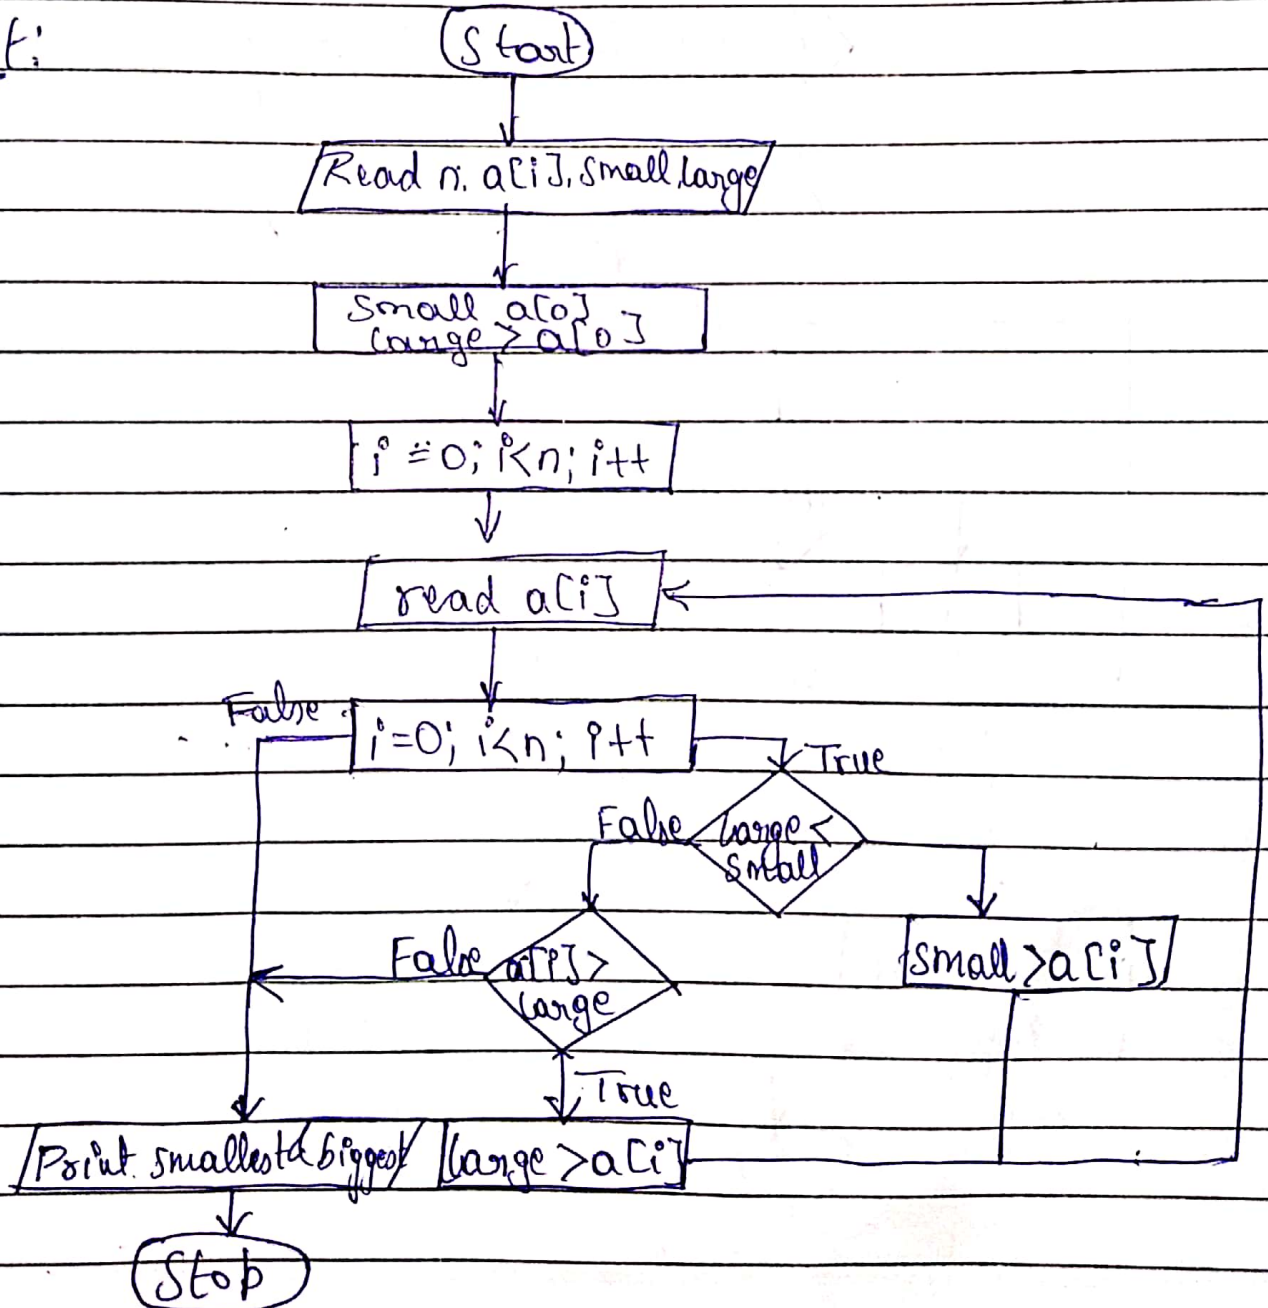 t:
Start
Read n, a[i], small, large
Small a[0]
large > a[0]
i = 0; i<n; i++
read a[i]
False
i=0; i<n; i++
True
False
large <
small
False
a[i] >
large
small >a[i]
True
Print smallest & biggest
large >a[i]
Stop